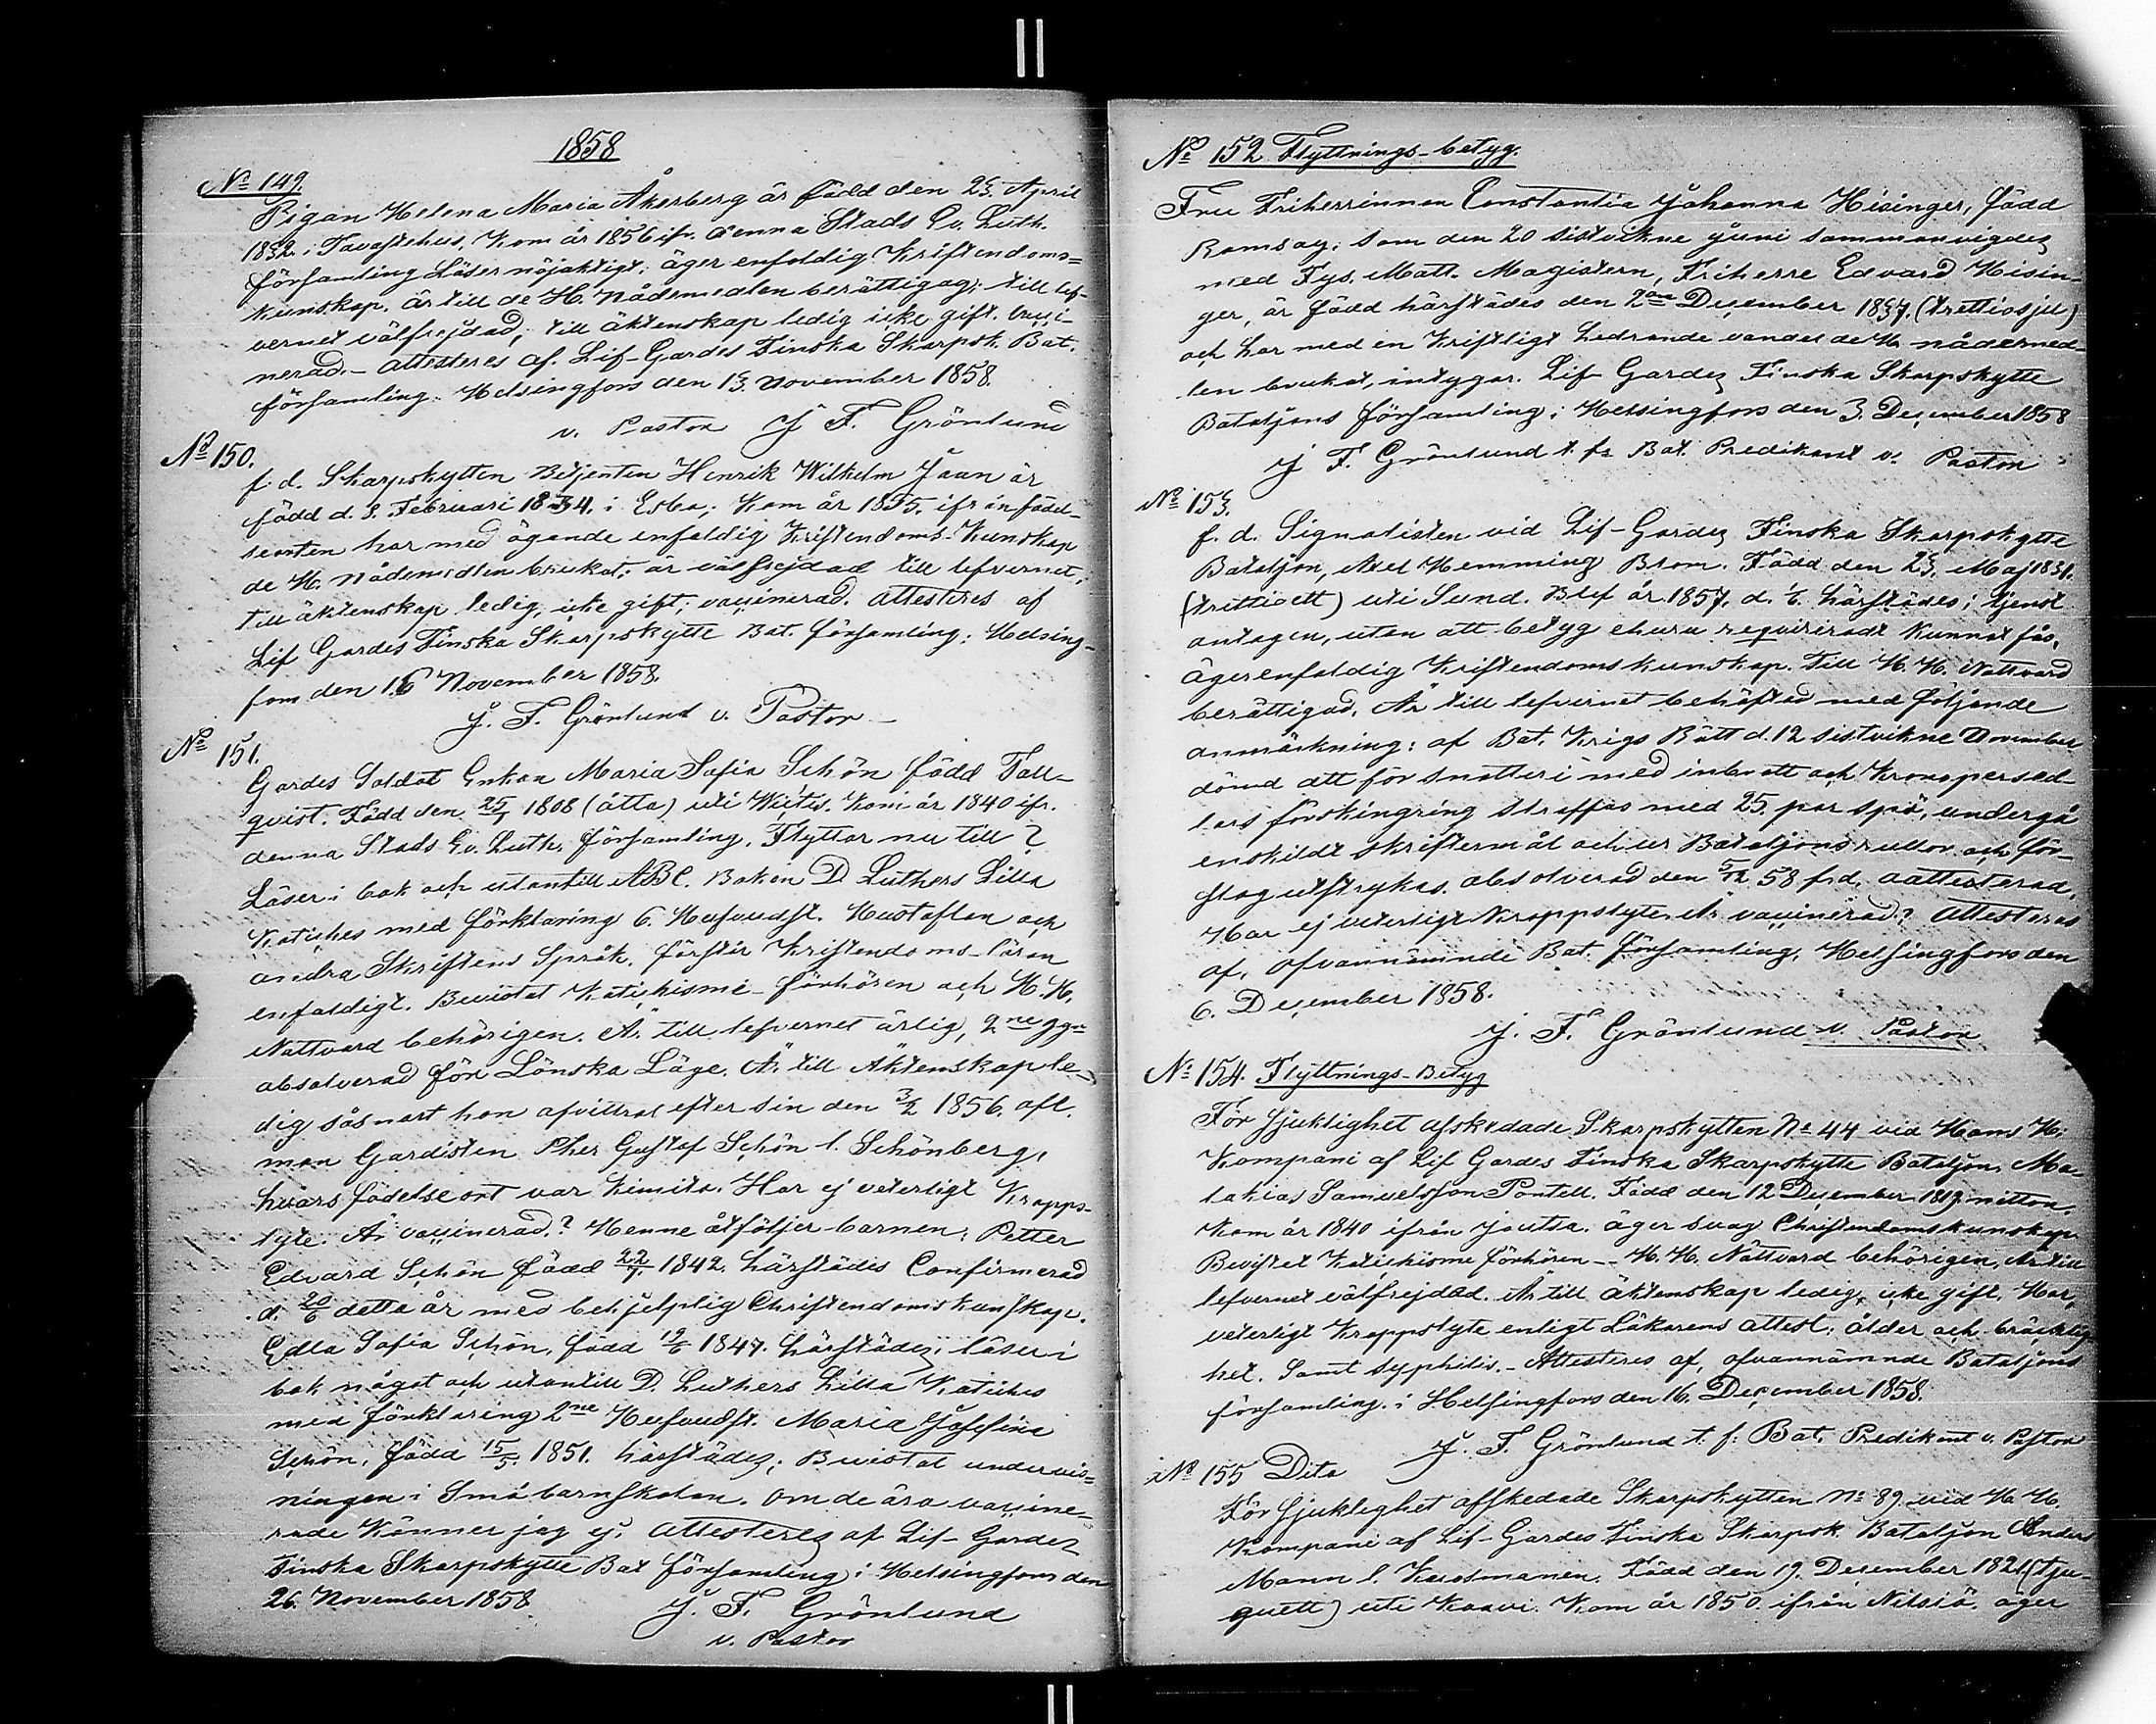 1858
No 149.
Pigan Helena Maria Åkerberg är född den 23. April
1832. i Tavastehus, kom år 1856 ifr. denna Stads Ev. Luth.
församling Läser nöjaktigt; äger enfoldig Kristendoms=
kunskap, är till de H. Nådemedlen berättigag; till lef-
vernet välfrejdad; till äktenskap ledig icke gift. Vacci-
nerad. - Attesteres af. Lif-Gardes Finska Skarpsk. Bat.
församling. Helsingfors den 13 November 1858.
v. Pastor J F. Grönlund
No 150.
f. d. Skarpskytten Betjenten Henrik Wilhelm Jaan är
född d. 8. Februari 1834. i Esbo; Kom år 1855. ifrån födel-
seorten har med ägande enfaldig Kristendoms-Kunskap
de H. Nådemedlen brukat; är välfrejdad till lefvernet,
till äktenskap ledig, icke gift; vaccinerad. Attesteres af
Lif Gardes Finska Skarpskytte Bat. församling: Helsing-
fors den 16 November 1858.
J. F. Grönlund v. Pastor -
No 151.
Gardes Soldat Enkan Maria Sofia Schön född Tall-
qvist. Född den 25/1 1808 (åtta) uti Wichtis. Kom år 1840 ifr.
denna Stads Ev. Luth. församling. Flyttar nu till ?
Läser i bok och utantill ABC. Boken D Luthers Lilla
Katiches med förklaring 6. Hufvudst. Hustaflan och
andra Skriftens Språk. förstår Kristendoms-läran
enfaldigt. Bevistat Katichismi-förhören och H. H.
Nattvard behörigen. Är till lefvernet ärlig, 2ne ggr
absolverad för Lönska Läge. Är till Äktenskap le-
dig såsnart hon afvittrat efter sin den 3/2 1856. afl.
man Gardisten Pher Gustaf Schön l. Schönberg,
hvars födelseort var Kimito. Har ej veterligt Kropps-
lyte. Är vaccinerad? Henne åtföljer barnen: Petter
Edvard Schön född 22/7. 1842. härstädes Confirmerad
d. 20/6 detta år med behjelplig Christendomskunskap.
Edla Sofia Schön, född 19/6 1847. härstädes, läser i
bok något och utantill D. Luthers Lilla Katiches
med förklaring 2ne Hufvudst. Maria Josefina
Schön, född 15/5. 1851. härstädes; Bevistat undervis=
ningen i Småbarnskolan. om de äro vaccine-
rade Känner jag ej. Attesteres af Lif-Gardes
Finska Skarpskytte Bat församling i Helsingfors den
26. November 1858
J. F. Grönlund
v. Pastor
No 152 Flyttnings-betyg.
Fru Friherrinnan Constantia Johanna Hisinger, född
Ramsay; som den 20 sistvikne Juni sammanvigdes
med Fys. Matt. Magistern, Friherre Edvard Hisin-
ger, är född härstädes den 2ne December 1837. (trettiosju)
och har med en Kristligt hedrande vandel de H. nådemed-
len brukat, intygar. Lif Gardes Finska Skarpskytte
Bataljons församling; Helsingfors den 3. December 1858
J F. Grönlund t. f. Bat. Predikant v. Pastor
No 153.
f. d. Signalisten vid Lif-Gardes Finska Skarpskytte
Bataljon, Axel Hemming Brom. Född den 23. Maj 1831.
(trittioett) uti Sund. Blef år 1857. d. 1/6. härstädes i tjenst
antagen, utan att betyg ehuru requireradt Kunnat fås,
äger enfaldig Kristendomskunskap. Till H. H. Nattvard
berättigad. Är till lefvernet behäftad med följande
anmärkning: af Bat. Krigs Rätt d. 12 sistvikne November
dömd att för snatteri med inbrott och Kronopersed-
lars förskingring straffas med 25. par spö, undergå
enskildt skriftermål och ur Bataljons rullor och för-
slag utstrykas. absolverad den 5/12 58 frd. aattesterad,
Har ej veterligt Kroppslyte. Är vaccinerad? Attesteres
af, ofvannämnde Bat. församling, Helsingfors den
6. December 1858.
J. F. Grönlund v. Pastor
No 154. Flyttnings-Betyg
För Sjuklighet afskedade Skarpskytten No 44 vid Hans H:
Kompani af Lif Gardes Finska Skarpskytte Bataljon, Ma-
lakias Samuelsson Pontell. Född den 12 December 1819 nitton.
Kom år 1840 ifrån Joutsa. äger svag Christendomskunskap
Bevistet Katichisme förhören - - H. H. Nattvard behörigen. Är till
lefvernet välfrejdad. Är till äktenskap ledig, icke gift. Har,
veterligt Kroppslyte enligt Läkarens attest; ålder och bräcklig-
het. Samt syphilis. - Attesteres af, ofvannämnde Bataljons
församling. i Helsingfors den 16. December 1858.
J. F. Grönlund t. f: Bat. Predikant v. Pastor
No 155 Dito
För Sjuklighet affkedade Skarpskytten No 89 vid H. H.
Kompani af Lif-Gardes Finska Skarpsk. Bataljon Anders
Mann l. Kustmanen. Född den 19. December 1821 (tju-
guett) uti Kaavi. Kom år 1850. ifrån Nilsiä. äger